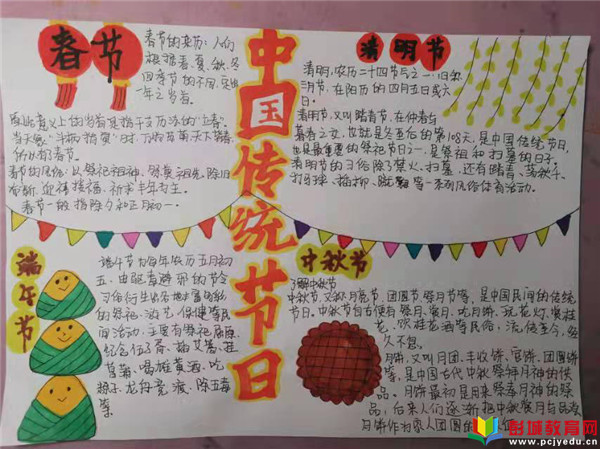 春节
春节的来历：人们
根据春、夏、秋、冬
四季节的不同，
年之岁首。
原始意义上的岁首是指干支历法的“立春”。
当天
春节。
春节的风俗，以祭祀祖神、祭奠祖先、除旧
布新、迎禧接福、祈求丰年为主。
春节一般指除夕和正月初一。
中国传统节日
清明节
清明，农历二十四节气之一，
三月节，在阳历的四月五日或六
日。
清明节，又叫踏青节，在仲春与
暮春之交，也就是冬至后的第108天，是中国传统节日，
也是最重要的祭祀节日之一，是祭祖和扫墓的日子。
清明节的习俗除了禁火、扫墓，还有踏青、荡秋千、
打马球、插柳、蹴鞠等一系列风俗体育活动。
端午节
端午节为每年农历五月初
五，由驱毒避邪的节令
习俗衍生出各地丰富多彩
的祭祀、游艺、保健等民
间活动，主要有祭祀屈原、
纪念伍子胥、插艾蒿、挂
菖蒲、喝雄黄酒、吃
粽子、龙舟竞渡、除五毒
等。
中秋节
了解中秋节
中秋节，又称月亮节、团圆节、祭月节等，是中国民间的传统
节日。中秋节自古便有祭月、赏月、吃月饼、玩花灯、赏桂
花、饮桂花酒等民俗，流传至今，经
久不息。
月饼，又叫月团、丰收饼、宫饼、团圆饼
等，是中国古代中秋祭拜月神的供
品。月饼最初是用来祭奉月神的祭
品，后来人们逐渐把中秋赏月与品尝
月饼作为家人团圆的
彭城教育网
www.pcjyedu.cn